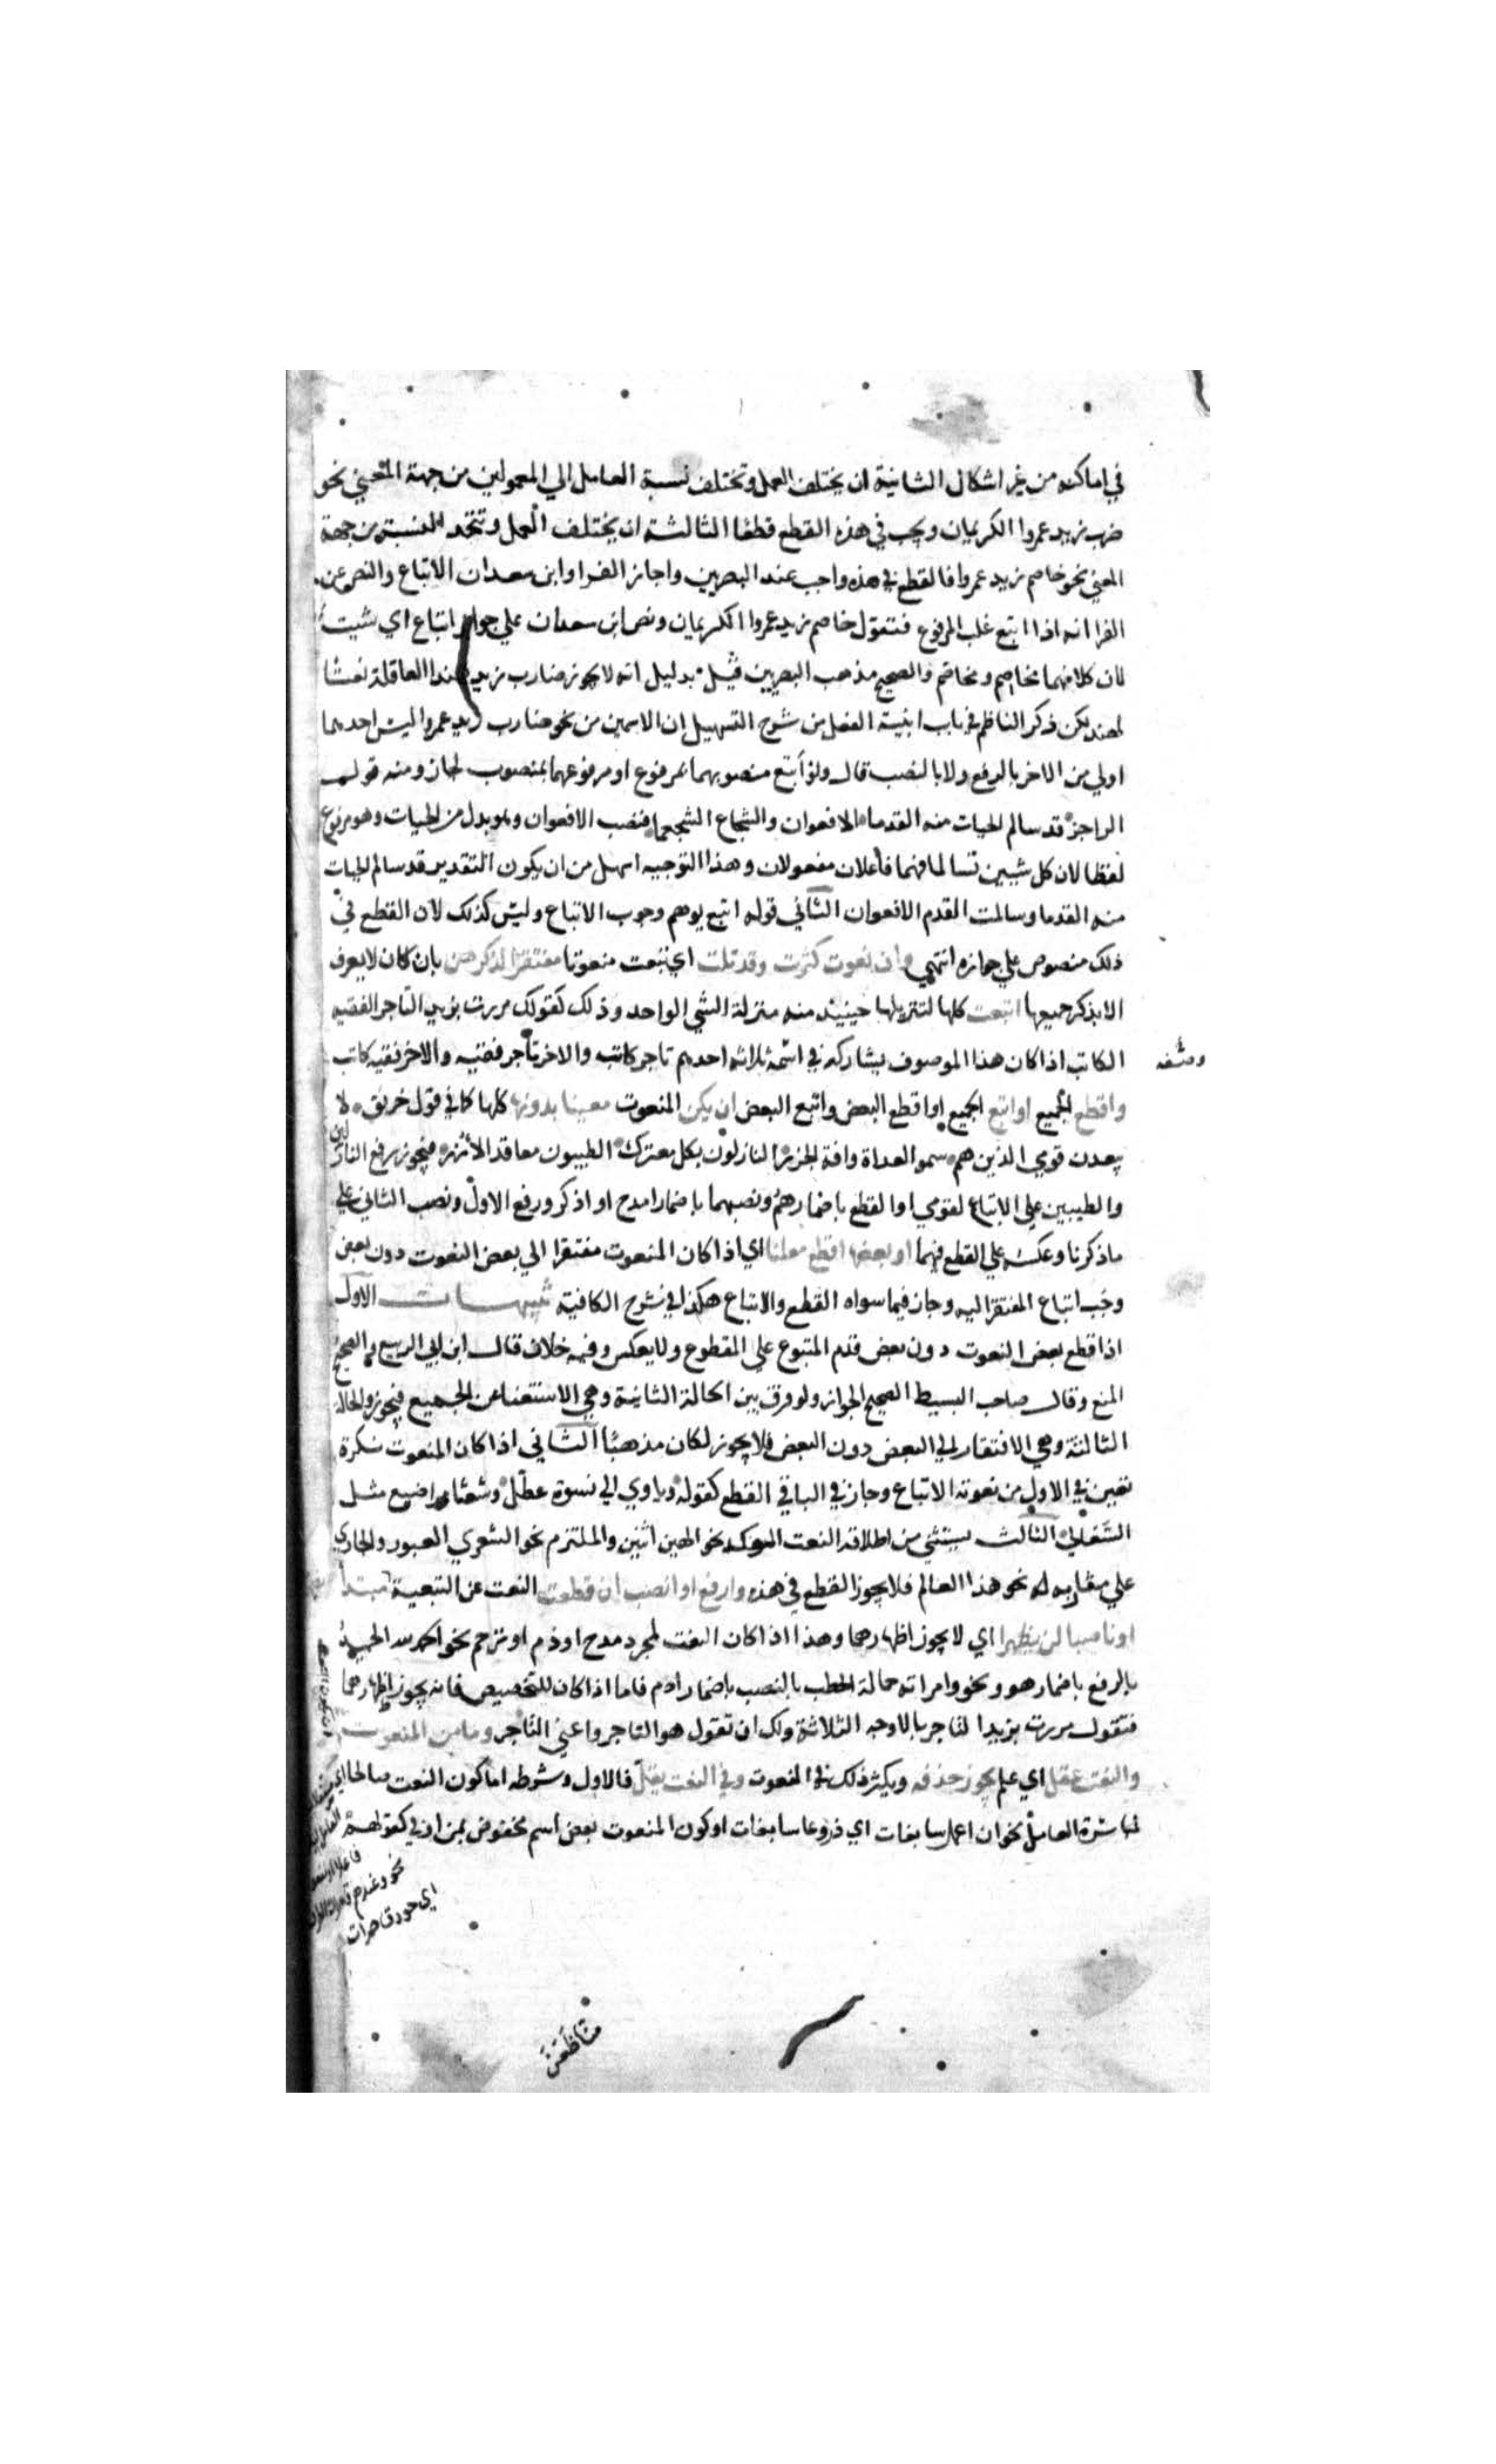 في اماكنه من غير اشكال الثانية ان يختلف العمل وتختلف نسبة العامل الي المعمولين من جهة المعني نحو
ضرب زيد عمروا الكريمان ويجب في هذه القطع قطعا الثالثة ان يختلف العمل وتتحد النسبة من جهة
المعني نحو خاصم زيد عمروا فالقطع في هذه واجب عند البصريين واجاز الفرا وابن سعدان الاتباع والنص عن
الفرا انه اذا اتبع غلب المرفوع فتقول خاصم زيد عمروا الكريمان ونص ابن سعدان علي جواز اتباع اي شيت
لان كلا منهما مخاصم ومخاصم والصحيح مذهب البصريين قيل بدليل انه لا يجوز ضارب زيد هندا العاقلة نعتا
لهند لكن ذكر الناظم في باب ابنية الفعل من شرح التسهيل ان الاسمين من نحو ضارب زيد عمروا ليس احدهما
اولي من الاخر بالرفع ولا بالنصب قال ولو اتبع منصوبهما بمرفوع او مرفوعهما بمنصوب لجاز ومنه قول
الراجز قد سالم الحيات منه القدما الافعوان والشجاع الشجعما فنصب الافعوان وهو بدل من الحيات وهو مرفوع
لفظا لان كل شيين تسالما فهما فاعلان مفعولان وهذا التوجيه اسهل من ان يكون التقدير قد سالم الحيات
منه القدما وسالمت القدم الافعوان الثاني قوله اتبع يوهم وجوب الاتباع وليس كذلك لان القطع في
ذلك منصوص علي جوازه انتهي وان نعوت كثرت وقد تلت اي تبعت منعوتا مفتقرا لذكرهن بان كان لا يعرف
الا بذكر جميعها اتبعت كلها لتنزيلها حينيذ منه منزلة الشي الواحد وذلك كقولك مررت بزيد التاجر الفقيه
الكاتب اذا كان هذا الموصوف يشاركه في اسمه ثلاثة احدهم تاجر كاتب والاخر تاجر فقيه والاخر فقيه كاتب
واقطع الجميع او اتبع الجميع او اقطع البعض واتبع البعض ان يكن المنعوت معينا بدونها كلها كما في قول خرنق لا
يبعدن قومي الذين هم سمو العداة وافة الجزر النازلون بكل معترك الطيبون معاقد الازر فيجوز رفع النازلين
والطيبين علي الاتباع لقومي او القطع باضمارهم ونصبهما باضمار امدح او اذكر ورفع الاول ونصب الثاني علي
ما ذكرنا وعكسه علي القطع فيهما او بعضها اقطع معلنا اي اذا كان المنعوت مفتقرا الي بعض النعوت دون بعض
وجب اتباع المفتقر اليه وجاز فيما سواه القطع والاتباع هكذا في شرح الكافية تنبيهات الاول
اذا قطع بعض النعوت دون بعض قدم المتبوع علي المقطوع ولا يعكس وفيه خلاف قال ابن ابي الربيع والصحيح
المنع وقال صاحب البسيط الصحيح الجواز ولو فرق بين الحالة الثانية وهي الاستغنا عن الجميع فيجوز والحالة
الثالثة وهي الافتقار الي البعض دون البعض فلا يجوز لكان مذهبا الثاني اذا كان المنعوت نكرة
تعين في الاول من نعوته الاتباع وجاز في الباقي القطع كقوله وياوي الي نسوة عطل وشعثا مراضيع مثل
السعالي الثالث يستثني من اطلاقه النعت الموكد نحو الهين اثنين والملتزم نحو الشعري العبور والجاري
علي مشار به له نحو هذا العالم فلا يجوز القطع في هذه وارفع او انصب ان قطعت النعت عن التبعية مبتدا
او ناصبا لن يظهرا اي لا يجوز اظهارهما وهذا اذا كان النعت لمجرد مدح او ذم او ترحم نحو الحمد لله الحميد
بالرفع باضمار هو ونحو وامراته حمالة الحطب بالنصب باضمار اذم فاما اذا كان للتخصيص فانه يجوز اظهارهما
فتقول مررت بزيد التاجر بالاوجه الثلاثة ولك ان تقول هو التاجر واعني التاجر وما من المنعوت
والنعت عقل اي علم يجوز حذفه ويكثر ذلك في المنعوت وفي النعت يقل فالاول وشرطه اما كون النعت صالحا
لمباشرة العامل نحو ان اعمل سابغات اي دروعا سابغات او كون المنعوت بعض اسم مخفوض بمن او في كقولهم
نحو وعندهم قاصرات
اي حور قاصرات